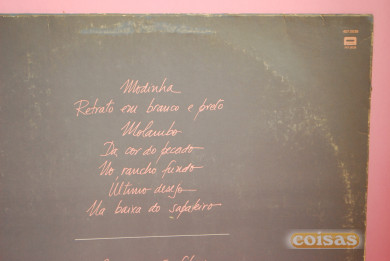 Modinha
Retrato em branco e preto
Molambo
Da cor do pecado
No rancho fundo
Último desejo
Na baixa do sapateiro
coisas